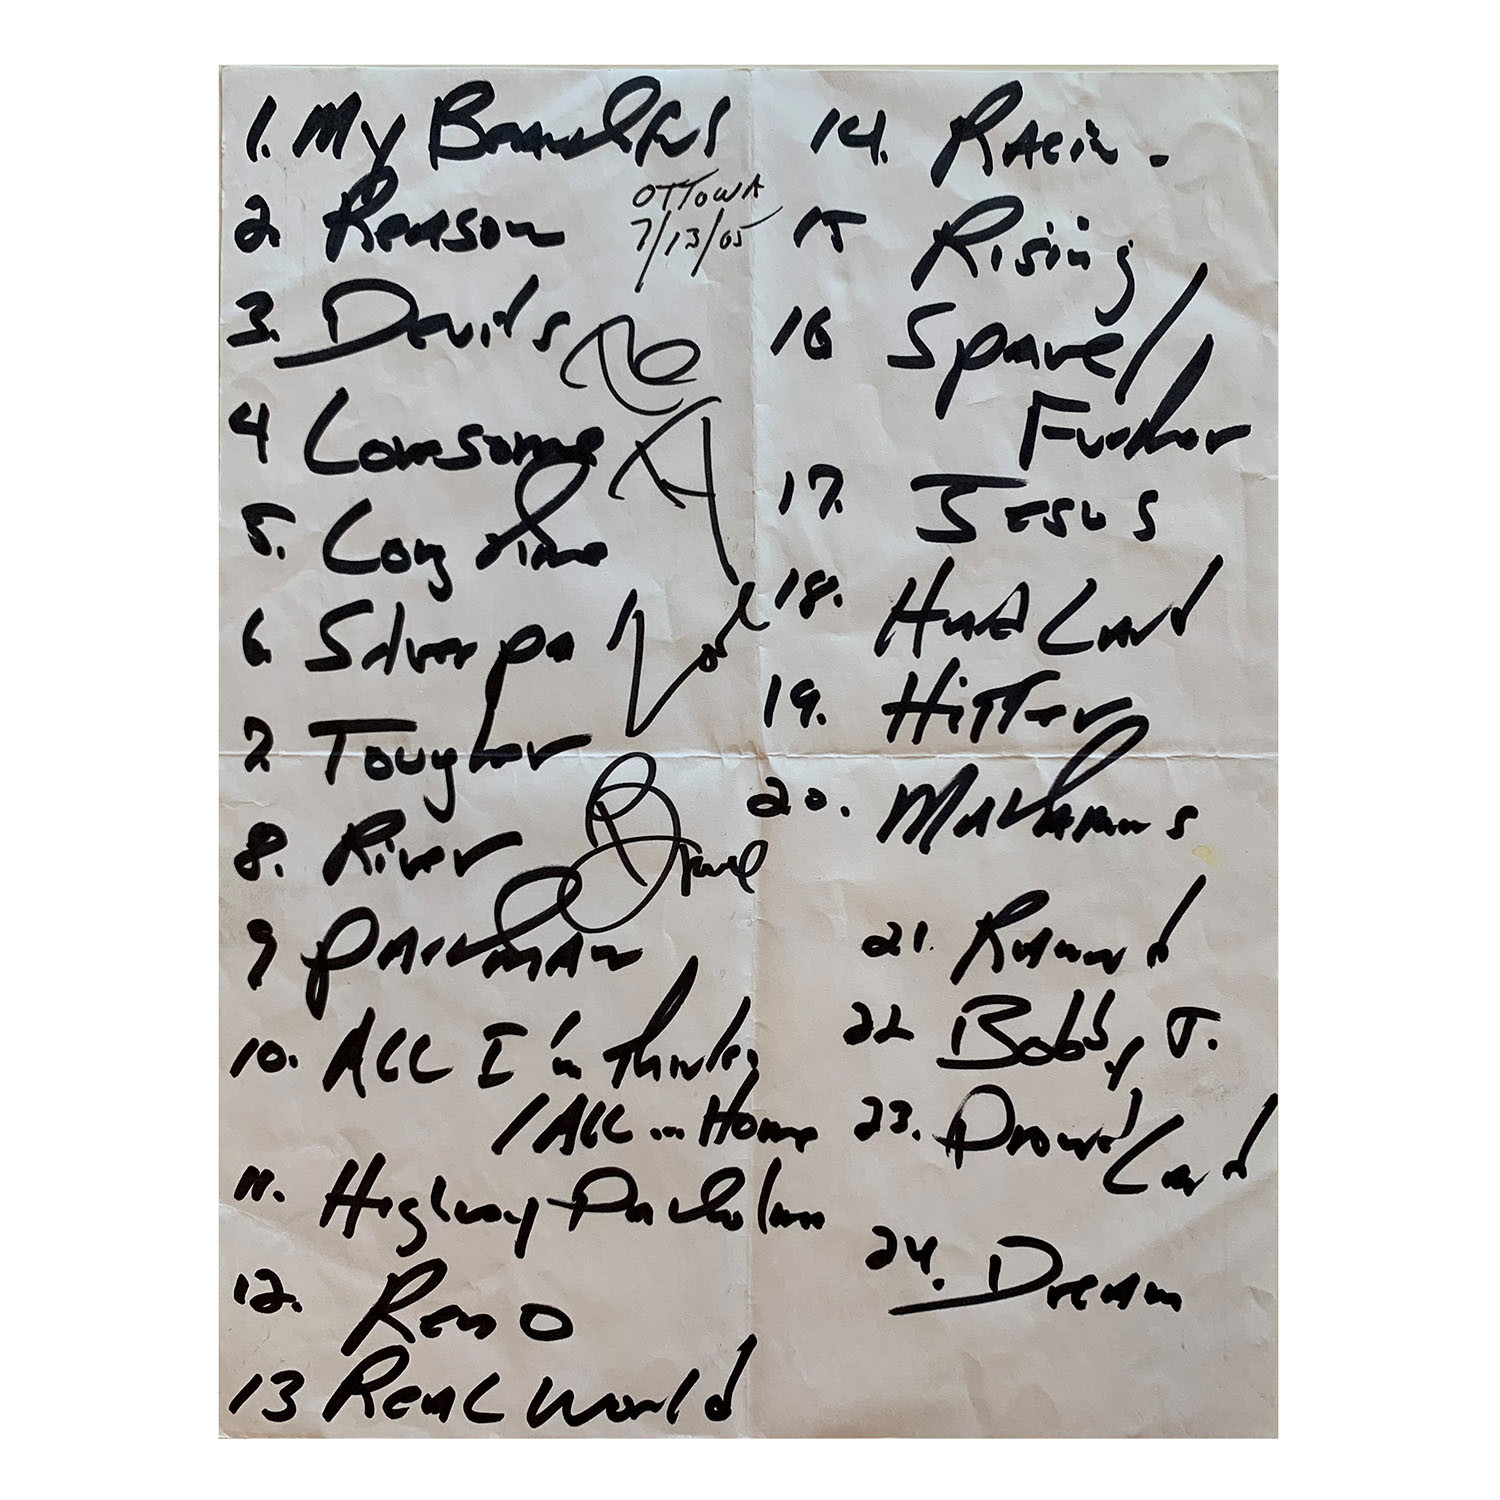 1. My Beautiful
OTTOWA
7/13/05
2. Reason
3. Devils
4 Lonesome
5. Long time
6 Silver pa
7 Tougher
8. River
9 Parkman
10. ALL I'm Thinkin
/ALL in Home
11. Highway Patrolman
12. Reno
13 Real World
Bruce
14. Racin.
15 Rising
16 Spare /
Further
17. Jesus
18. Hard Land
19. Hitter
20. Matamoras
21. Ramrod
22 Bobby J.
23. Promised Land
24. Dream